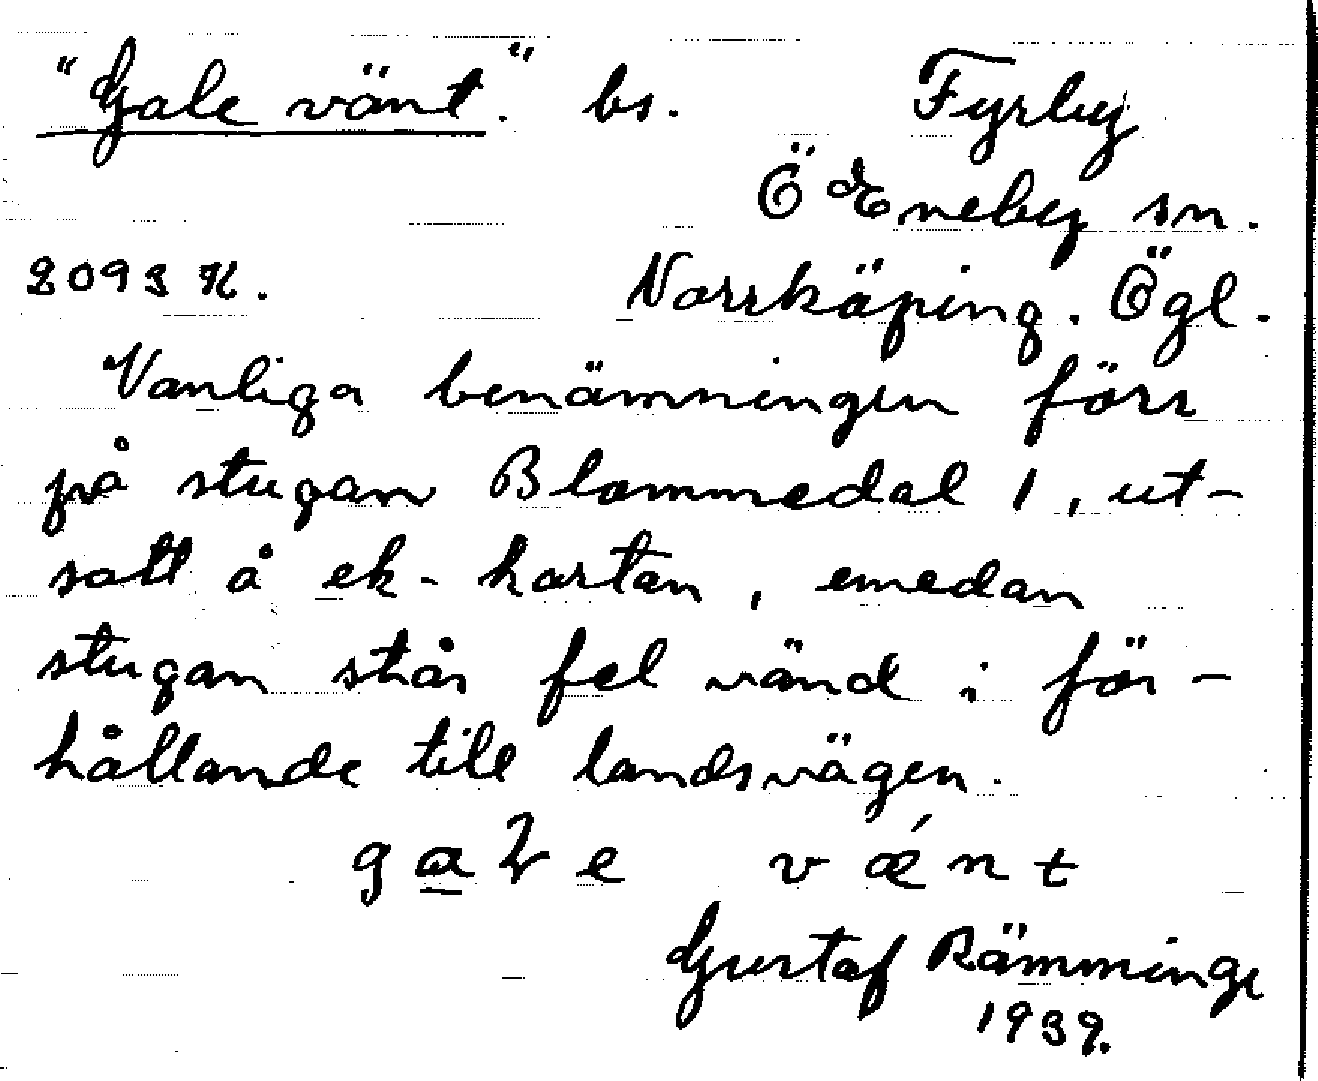 "Gale vänt." bs. Fyrby
Ö Eneby sn.
2093 K. Norrköping. Ögl.
Vanliga benämningen förr
på stugan Blommedal 1, ut-
satt å ek-kartan, emedan
stugan står fel vänd i för-
hållande till landsvägen.
ga̲ɫe vǽnt
Gustaf Rämminge
1939.